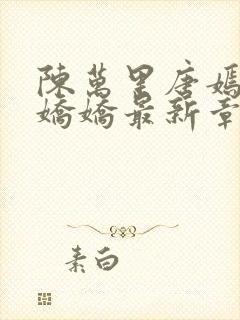 陳萬里唐嫣
嬌嬌最新章
素白